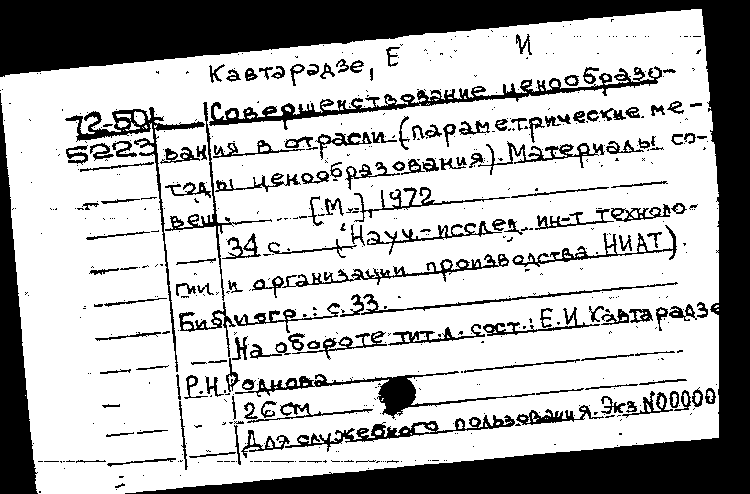 Кавтарадзе, Е И
72-50
5223
Совершенствование ценообразо-
вания в отрасли (параметрические ме-
тоды ценообразования). Материалы со-
вещ. [М.], 1972
34 с. (Науч.-исслед. ин-т техноло-
гии и организации производства НИАТ).
Библиогр.: с. 33.
На обороте тит. л. сост.: Е.И. Кавтарадзе
Р.Н. Роднова.
26 см.
Для служебного пользования. Экз. N00000